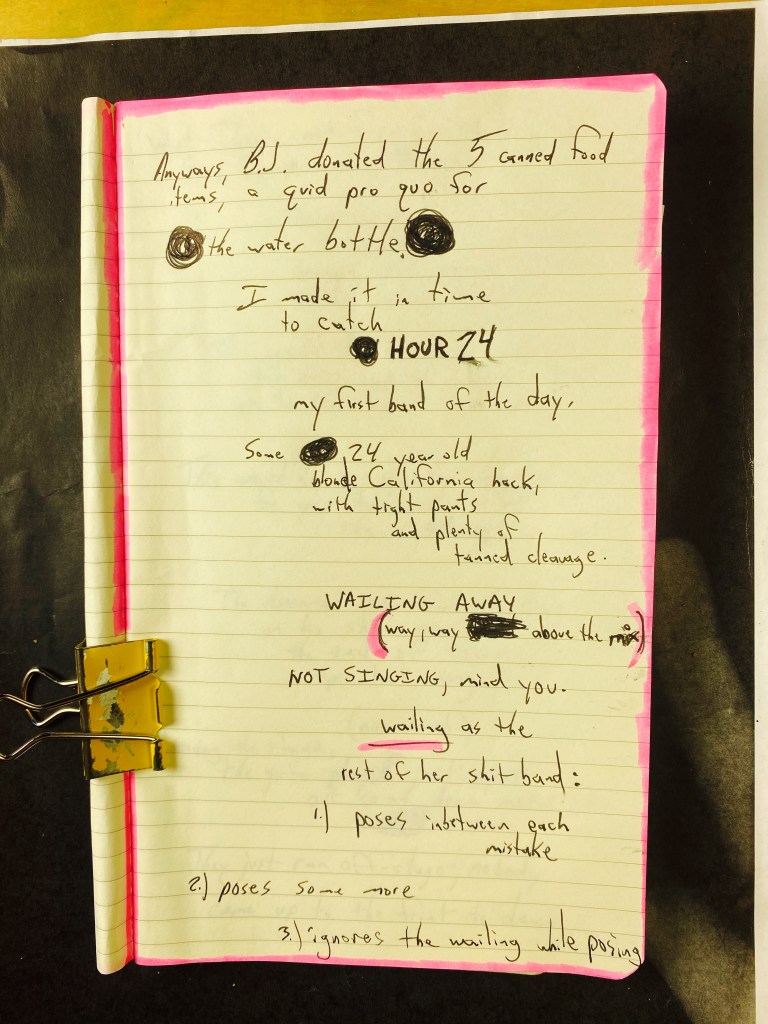 Anyways, B.J. donated the 5 canned food
items, a quid pro quo for
the water bottle.
I made it in time
to catch
HOUR 24
my first band of the day.
Some 24 year old
blonde California hack,
with tight pants
and plenty of
tanned cleavage.
WAILING AWAY
(way, way above the mix)
NOT SINGING, mind you.
wailing as the
rest of her shit band:
1.) poses inbetween each
mistake
2.) poses some more
3.) ignores the wailing while posing